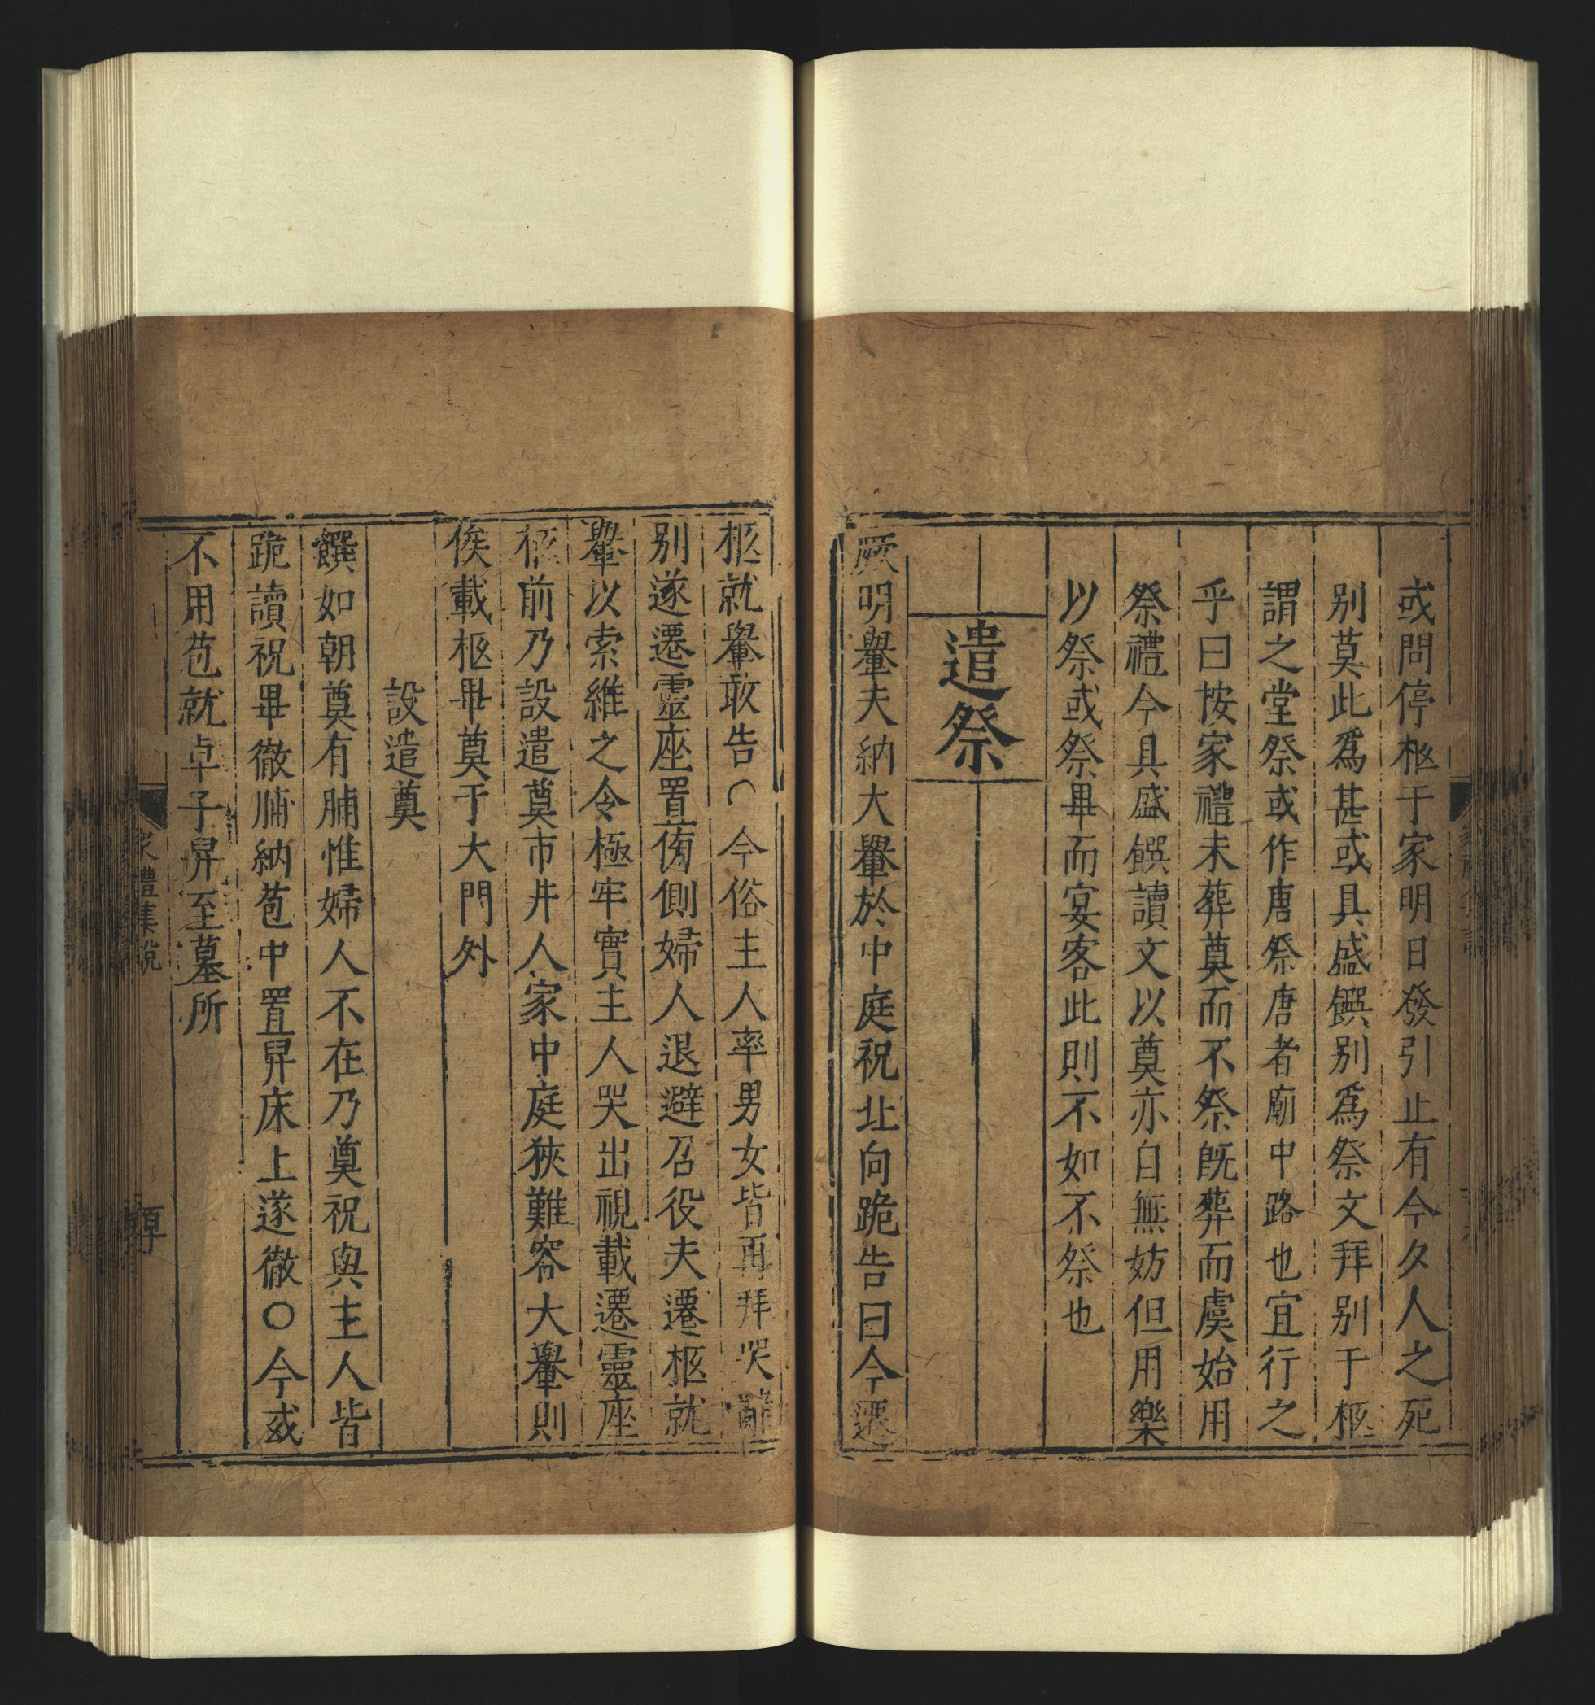 或問停柩于家明日發引止有今夕人之死
别莫此爲甚或具盛饌别爲祭文拜别于柩
謂之堂祭或作唐祭唐者廟中路也宜行之
乎曰按家禮未葬奠而不祭旣葬而虞始用
祭禮今具盛饌讀文以奠亦自無妨但用樂
以祭或祭畢而宴客此則不如不祭也
遣祭
厥明轝夫納大轝於中庭祝北向跪告曰今遷
柩就轝敢告○今俗主人率男女皆再拜哭辭
别遂遷靈座置傍側婦人退避召役夫遷柩就
轝以索維之令極牢實主人哭出視載遷靈座
柩前乃設遣奠市井人家中庭狹難容大轝則
俟載柩畢奠于大門外
設遣奠
饌如朝奠有脯惟婦人不在乃奠祝與主人皆
跪讀祝畢徹脯納苞中置舁床上遂徹○今或
不用苞就卓子舁至墓所
家禮集說